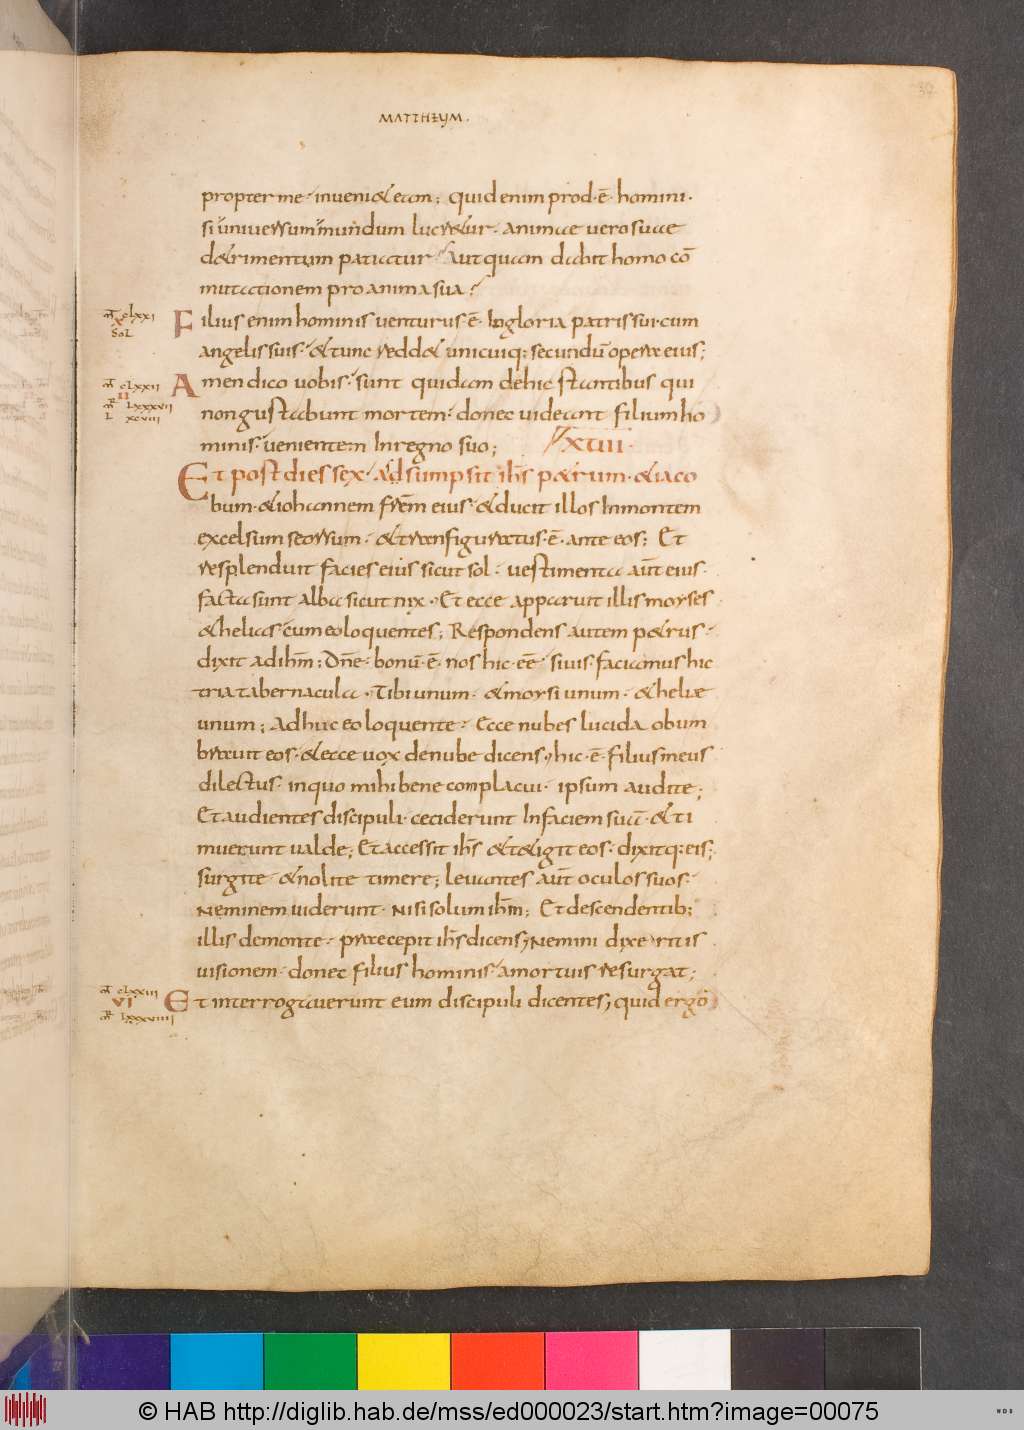 MATTHEUM.
37
propter me· inveni&eam; quid enim prod·ē· homini·
si universum mundum lucr&ur· animae vero suae
d&rimentum patiatur· Aut quam dabit homo cō
mutationem pro anima sua?
m̄ clxxi
x
sol
Filius enim hominis venturus ē· In gloria patris sui· cum
angelis suis· &tunc redd& unicuiq; secundū opera eius;
m̄ clxxii
ii
m̄ lxxxvii
l xcviii
Amen dico vobis· sunt quidam de hic stantibus qui
non gustabunt mortem· donec videant filium ho
minis· venientem In regno suo; XVII·
Et post dies sex· Adsumpsit ihs p&rum· &iaco
bum· &iohannem frēm eius· &ducit illos In montem
excelsum seorsum· &transfiguratus·ē· ante eos; Et
resplenduit facies eius sicut sol· vestimenta aūt eius·
facta sunt alba sicut nix· Et ecce apparuit illis moyses
&helias cum eo loquentes; Respondens autem p&rus·
dixit ad ihm̄; Dn̄e· bonū·ē· nos hic·eē· si vis· faciamus hic
tria tabernacula· Tibi unum· &moysi unum· &heliae
unum; Adhuc eo loquente· Ecce nubes lucida obum
bravit eos· &ecce vox de nube dicens; hic·ē· filius meus
dilectus· in quo mihi bene complacui· ipsum audite;
Et audientes discipuli· ceciderunt In faciem suā· &ti
muerunt valde; Et accessit ihs &t&igit eos· dixitq; eis;
surgite· &nolite timere; levantes aūt oculos suos·
Neminem viderunt· Nisi solum ihm̄; Et descendentib;
illis de monte· praecepit ihs dicens; Nemini dixeritis
visionem· donec filius hominis· a mortuis resurgat;
m̄ clxxiii
VI
m̄ lxxxviiii
Et interrogaverunt eum discipuli dicentes; quid ergo
© HAB http://diglib.hab.de/mss/ed000023/start.htm?image=00075
WDB